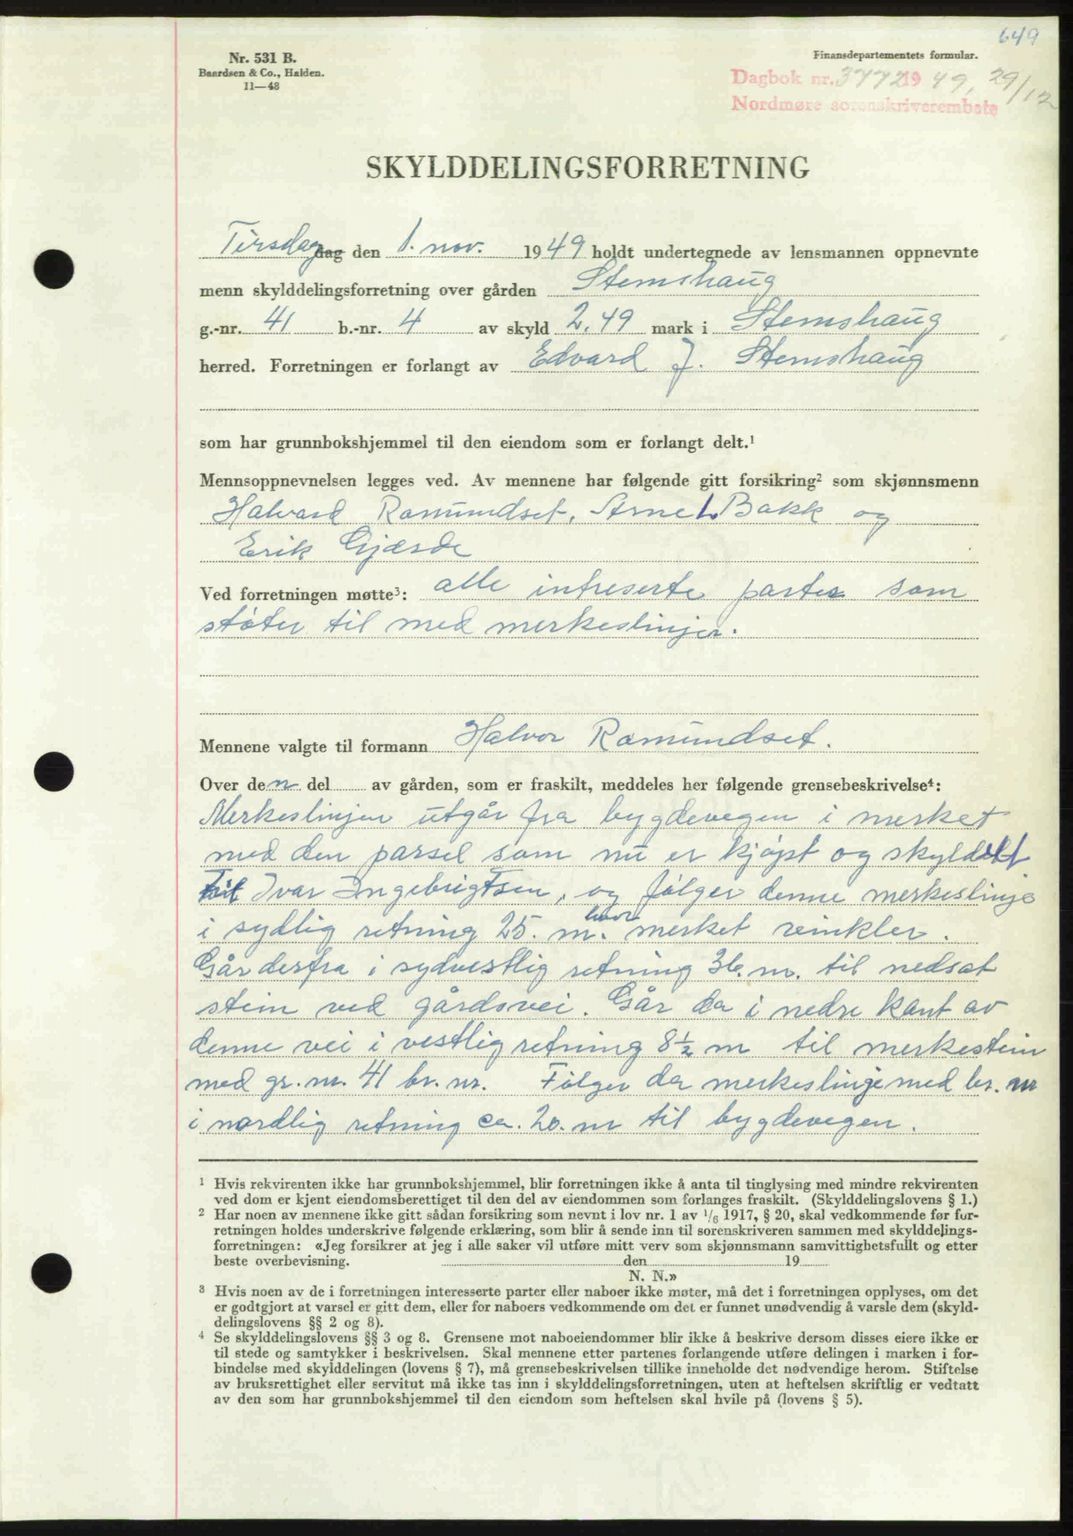 649
Nr. 531 B.
Baardsen & Co., Halden.
11—48
Finansdepartementets formular.
Dagbok nr. 3772 1949, 29/12
Nordmøre sorenskriverembete
SKYLDDELINGSFORRETNING
Tirsdag dag den 1. nov. 1949 holdt undertegnede av lensmannen oppnevnte
menn skylddelingsforretning over gården Stemshaug
g.-nr. 41 b.-nr. 4 av skyld 2.49 mark i Stemshaug
herred. Forretningen er forlangt av Edvard J. Stemshaug
som har grunnbokshjemmel til den eiendom som er forlangt delt.¹
Mennsoppnevnelsen legges ved. Av mennene har følgende gitt forsikring² som skjønnsmenn
Halvard Romundset, Arne L Bakk og
Erik Gjæsde
Ved forretningen møtte³: alle intreserte parter som
støter til med merkeslinjer.
Mennene valgte til formann Halvor Romundset.
Over den del av gården, som er fraskilt, meddeles her følgende grensebeskrivelse⁴:
Merkeslinjen utgår fra bygdevegen i merket
med den parsel som nu er kjøpt og skyldelt
til Ivar Ingebrigtsen, og følger denne merkeslinje
i sydlig retning 25. m. hvor merket vinkler.
Går derfra i sydvestlig retning 36. m. til nedsat
stein ved gårdsvei. Går da i nedre kant av
denne vei i vestlig retning 8½ m til merkestein
med gr. nr. 41 br. nr. Følger da merkeslinje med br. nr
i nordlig retning ca. 20. m til bygdevegen.
¹ Hvis rekvirenten ikke har grunnbokshjemmel, blir forretningen ikke å anta til tinglysing med mindre rekvirenten
ved dom er kjent eiendomsberettiget til den del av eiendommen som forlanges fraskilt. (Skylddelingslovens § 1.)
² Har noen av mennene ikke gitt sådan forsikring som nevnt i lov nr. 1 av 1/6 1917, § 20, skal vedkommende før for-
retningen holdes underskrive følgende erklæring, som blir å sende inn til sorenskriveren sammen med skylddelings-
forretningen: «Jeg forsikrer at jeg i alle saker vil utføre mitt verv som skjønnsmann samvittighetsfullt og etter
beste overbevisning. den 19
N. N.»
³ Hvis noen av de i forretningen interesserte parter eller naboer ikke møter, må det i forretningen opplyses, om det
er godtgjort at varsel er gitt dem, eller for naboers vedkommende om det er funnet unødvendig å varsle dem (skyld-
delingslovens §§ 2 og 8).
⁴ Se skylddelingslovens §§ 3 og 8. Grensene mot naboeiendommer blir ikke å beskrive dersom disses eiere ikke er
til stede og samtykker i beskrivelsen. Skal mennene etter partenes forlangende utføre delingen i marken i for-
bindelse med skylddelingen (lovens § 7), må grensebeskrivelsen tillike inneholde det nødvendige herom. Stiftelse
av bruksrettighet eller servitut må ikke tas inn i skylddelingsforretningen, uten at heftelsen skriftlig er vedtatt
av den som har grunnbokshjemmel til den eiendom som heftelsen skal hvile på (lovens § 5).